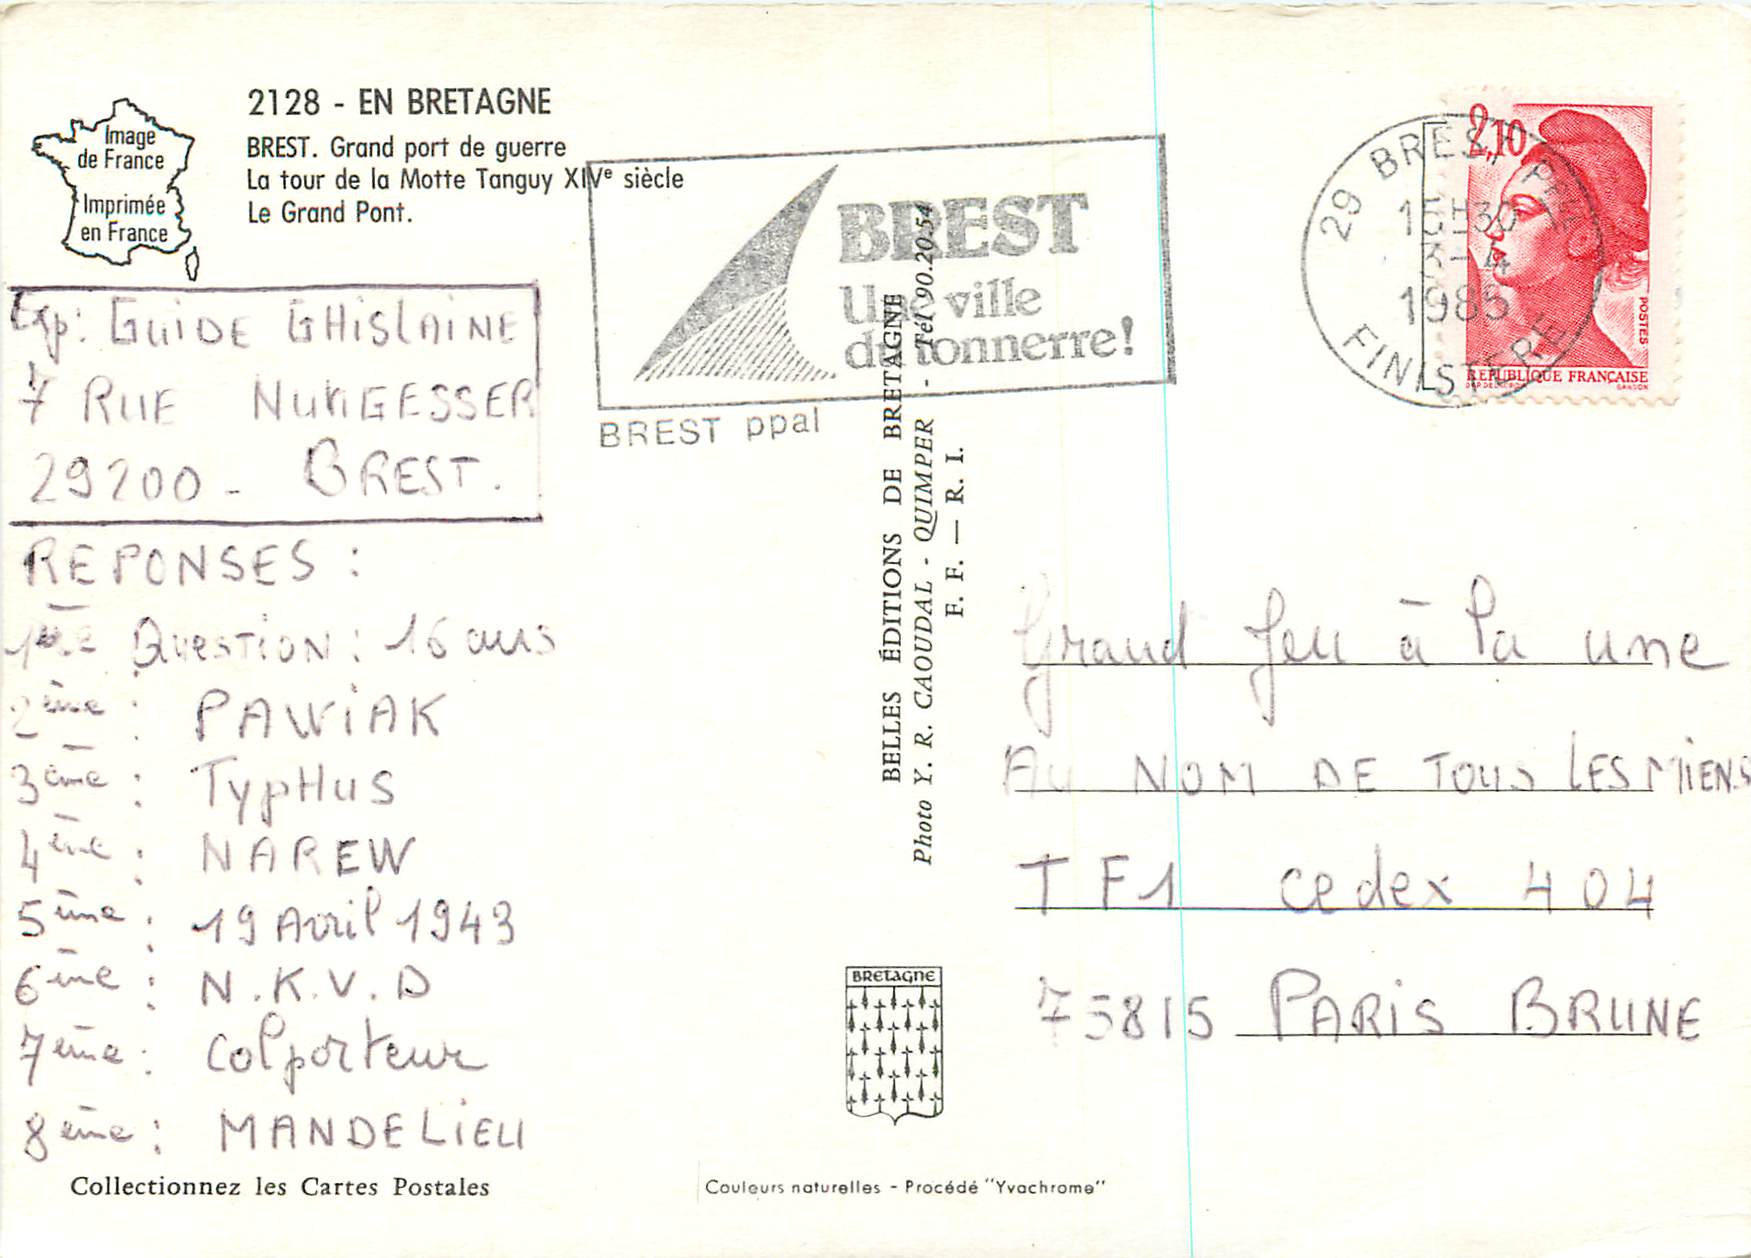 Image
de France
Imprimée
en France
2128 - EN BRETAGNE
BREST. Grand port de guerre
La tour de la Motte Tanguy XIVe siècle
Le Grand Pont.
Exp: GUIDE GHISLAINE
7 RUE NUNGESSER
29200 - BREST.
REPONSES :
1ère QUESTION : 16 ans
2ème : PAWIAK
3ème : TYPHUS
4ème : NAREW
5ème : 19 Avril 1943
6ème : N.K.V.D
7ème : Colporteur
8ème : MANDELIEU
Collectionnez les Cartes Postales
BREST
Une ville
du tonnerre!
BREST ppal
BELLES ÉDITIONS DE BRETAGNE
Photo Y. R. CAOUDAL - QUIMPER - Tél 90.20.54
F. F. — R. I.
BRETAGNE
Couleurs naturelles - Procédé "Yvachrome"
29 BREST PPAL
15H30
3-4
1985
FINISTERE
2,10
POSTES
REPUBLIQUE FRANÇAISE
Grand Jeu à la une
AU NOM DE TOUS LES MIENS
TF1 cedex 404
75815 PARIS BRUNE